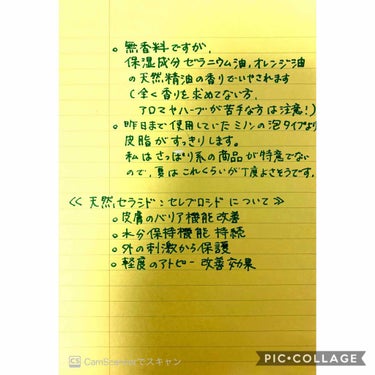 ○ 無香料ですが、
保湿成分ゼラニウム油、オレンジ油
の天然精油の香りでいやされます
(全く香りを求めてない方、
アロマやハーブが苦手な方は注意!)
○ 昨日まで使用していたミノンの泡タイプより
皮脂がすっきりします。
私はさっぱり系の商品が得意でない
ので、夏はこれくらいが丁度よさそうです。
≪ 天然セラミド:セレブロシド について ≫
○ 皮膚のバリア機能改善
○ 水分保持機能 持続
○ 外の刺激から保護
○ 軽度のアトピー改善効果
CS CamScannerでスキャン
PIC•COLLAGE